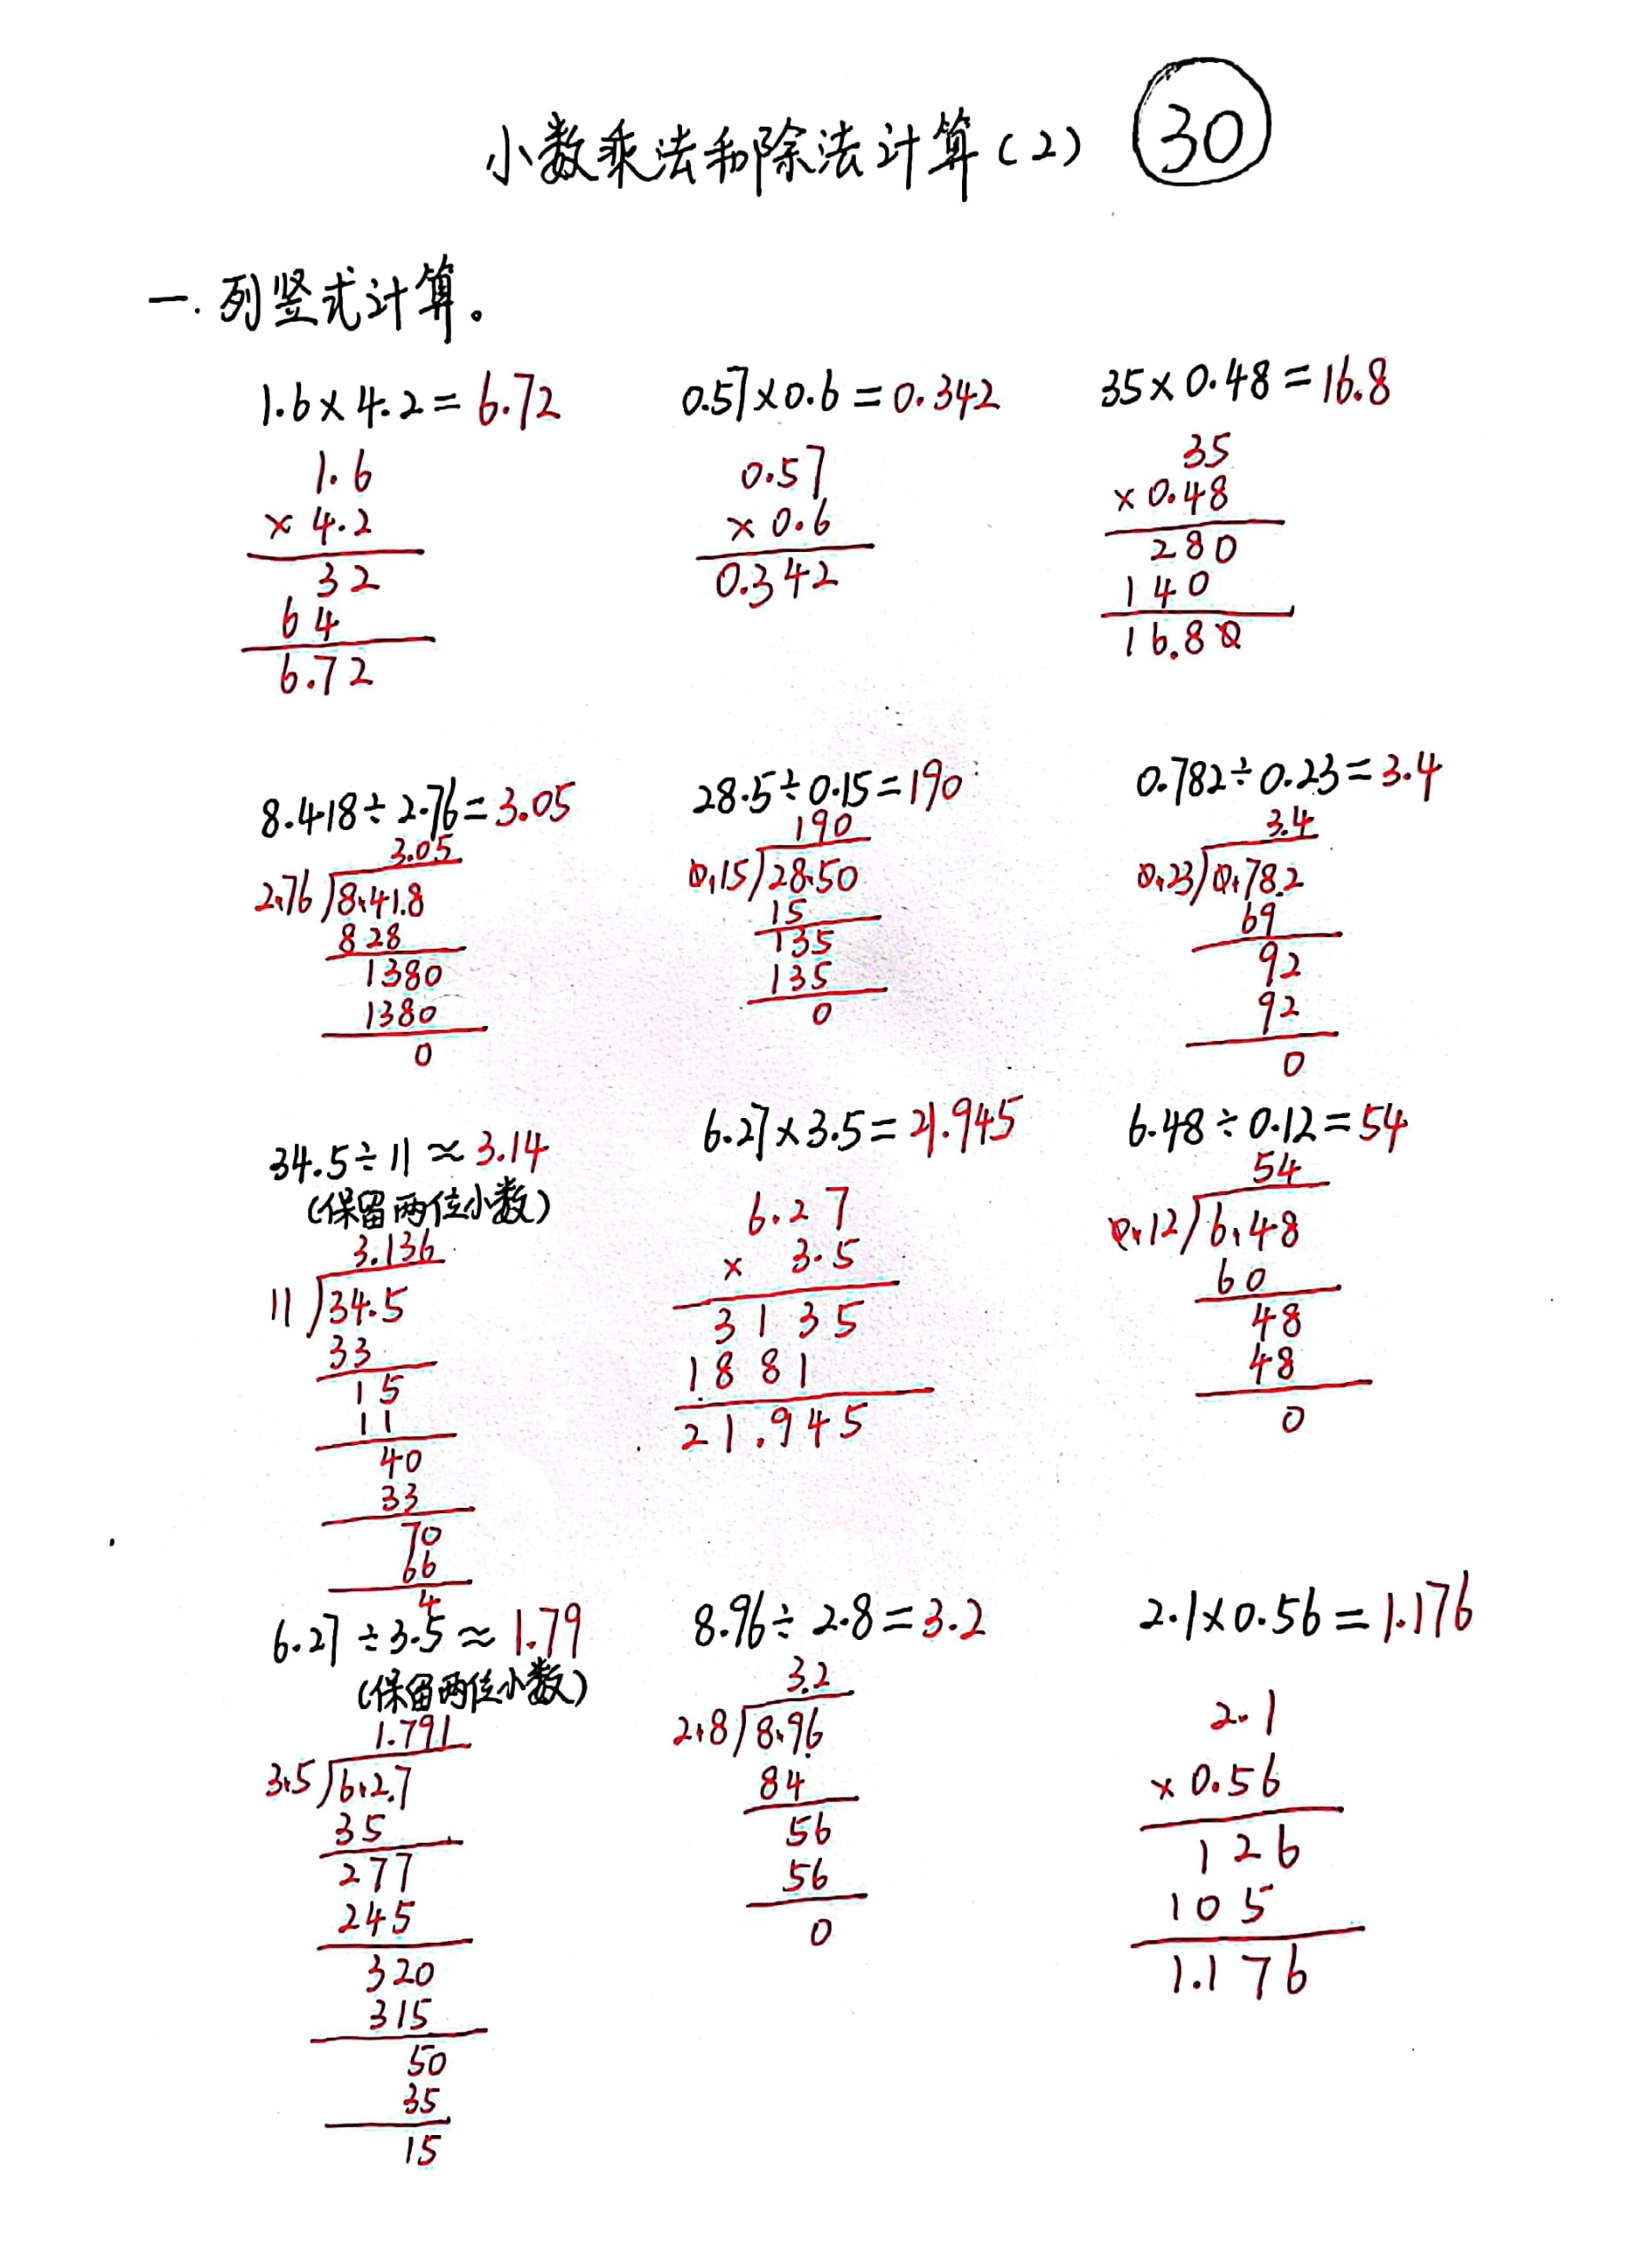 小数乘法和除法计算(2) 30
一.列竖式计算。
1.6×4.2=6.72
1.6
×4.2
32
64
6.72
0.57×0.6=0.342
0.57
×0.6
0.342
35×0.48=16.8
35
×0.48
280
140
16.80
8.418÷2.76=3.05
3.05
2.76 8.41.8
828
1380
1380
0
28.5÷0.15=190
190
0.15 28.50
15
135
135
0
0.782÷0.23=3.4
3.4
0.23 0.78.2
69
92
92
0
34.5÷11≈3.14
(保留两位小数)
3.136
11 34.5
33
15
11
40
33
70
66
4
6.27×3.5=21.945
6.27
× 3.5
3135
1881
21.945
6.48÷0.12=54
54
0.12 6.48
60
48
48
0
6.27÷3.5≈1.79
(保留两位小数)
1.791
3.5 6.2.7
35
277
245
320
315
50
35
15
8.96÷2.8=3.2
3.2
2.8 8.96
84
56
56
0
2.1×0.56=1.176
2.1
×0.56
126
105
1.176